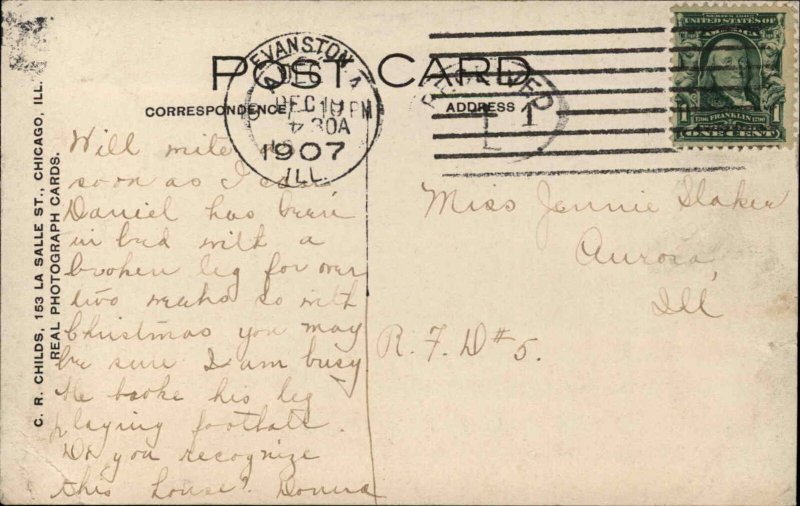 POST CARD
CORRESPONDENCE
ADDRESS
EVANSTON
DEC 1
4 30A
1907
ILL.
RECEIVED
1
SERIES 1902
UNITED STATES OF AMERICA
1 1
1706 FRANKLIN 1790
POSTAGE
ONE CENT
C. R. CHILDS, 153 LA SALLE ST., CHICAGO, ILL.
REAL PHOTOGRAPH CARDS.
Will write
soon as I can
Daniel has been
in bed with a
broken leg for over
two weeks so with
Christmas you may
be sure I am busy
He broke his leg
playing football.
Do you recognize
this house? Donna
Miss Jennie Slaker
Aurora,
Ill
R. F. D #5.